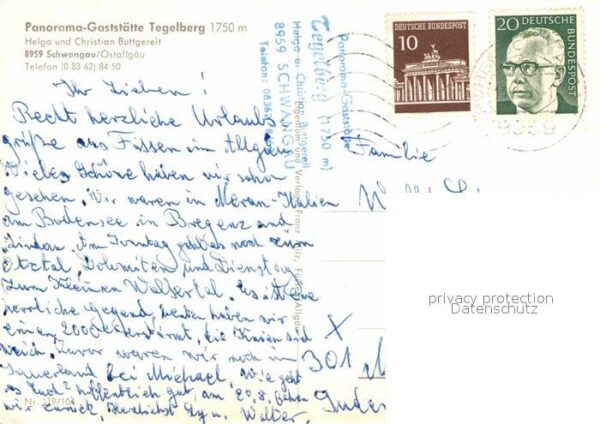 Panorama-Gaststätte Tegelberg 1750 m
Helga und Christian Buttgereit
8959 Schwangau/Ostallgäu
Telefon (0 83 62) 84 50
Ihr Lieben!
Recht herzliche Urlaubs
grüße aus Füssen im Allgäu
Vieles Schöne haben wir schon
gesehen. Wir waren in Meran-Italien
am Bodensee in Bregenz und
Lindau. Am Sonntag geht es noch zum
Ötztal, Dolomiten und Dienstag
zum Kleinen Walsertal. Es ist eine
herrliche Gegend, heute haben wir
einen 2000er die Knien sind
weich. Zuvor waren wir noch im
Sauerland bei Michael. Wie geht
es Euch? Hoffentlich gut, am 20.8. fahren
wir zurück. Herzlichst Ly u. Walter.
Nr. 119/104
Panorama-Gaststätte
Tegelberg (1750 m)
Helga u. Christ. Buttgereit
8959 SCHWANGAU
Telefon: 0836
und Verlag Franz Milz, Füssen/Allgäu
10
DEUTSCHE BUNDESPOST
20
DEUTSCHE
BUNDESPOST
8959
Familie
301
privacy protection
Datenschutz